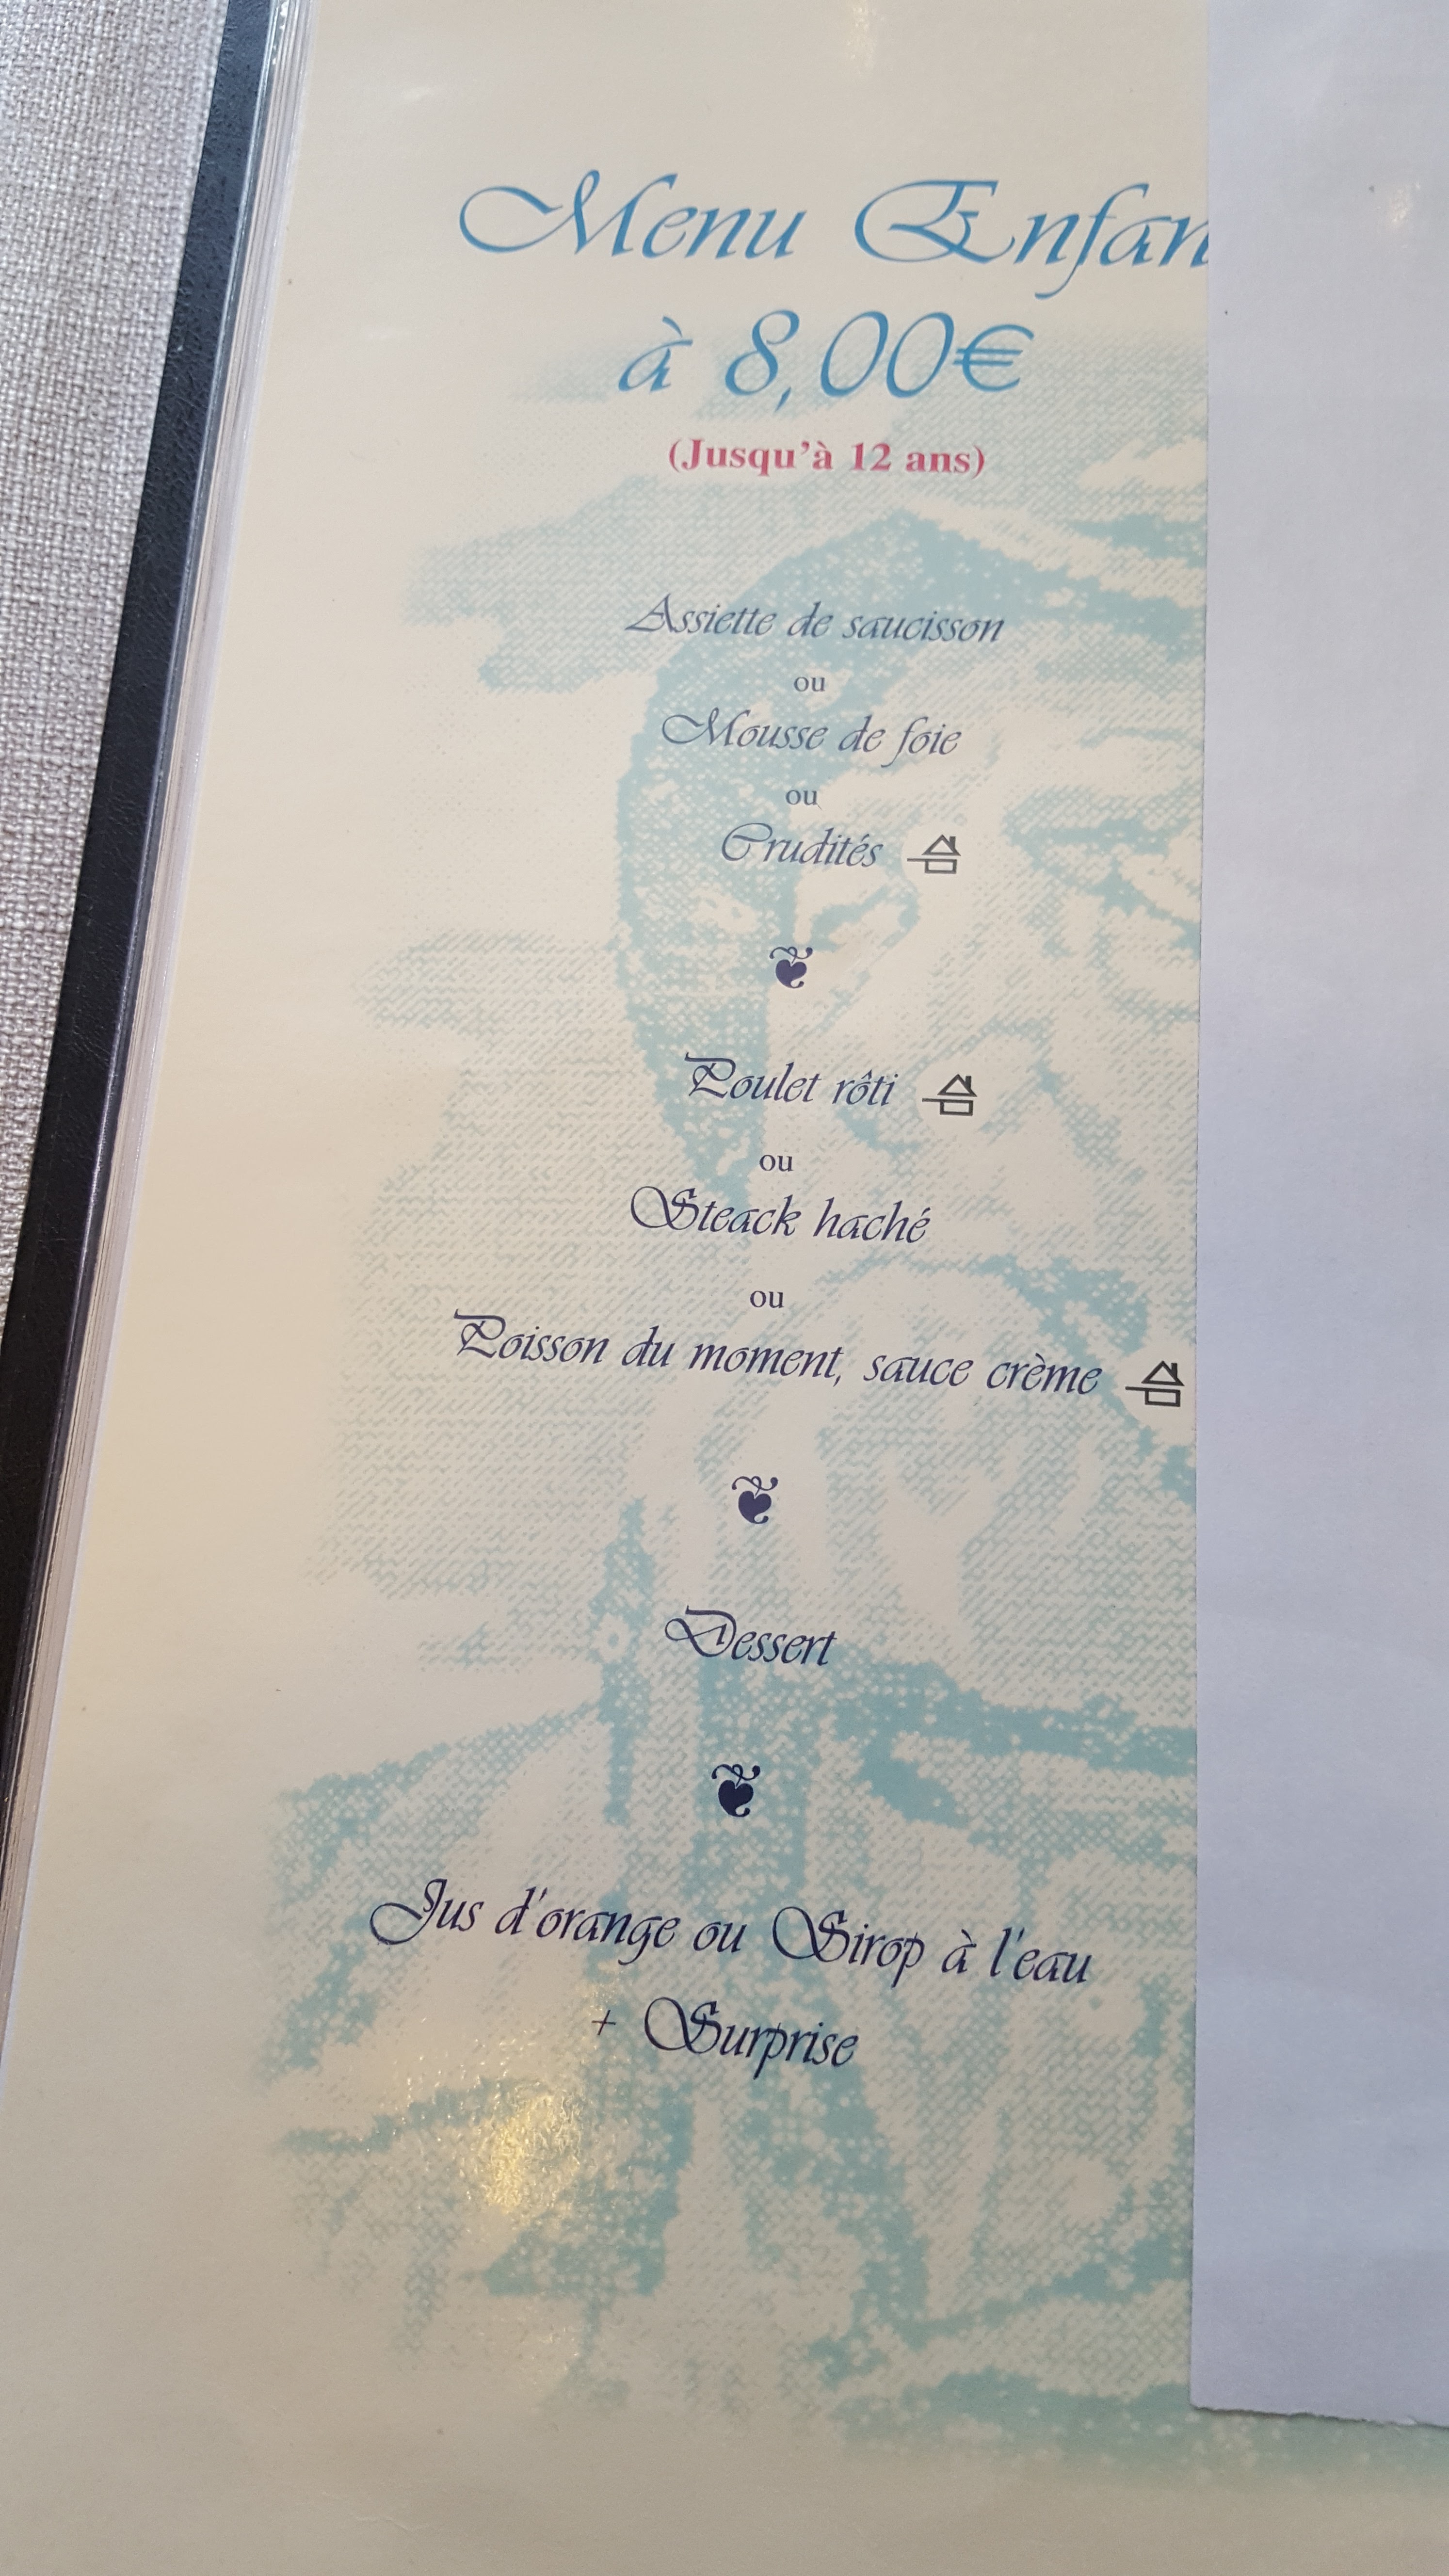 Menu Enfan
à 8,00€
(Jusqu'à 12 ans)
Assiette de saucisson
ou
Mousse de foie
ou
Crudités
Poulet rôti
ou
Steack haché
ou
Poisson du moment, sauce crème
Dessert
Jus d'orange ou Sirop à l'eau
+ Surprise